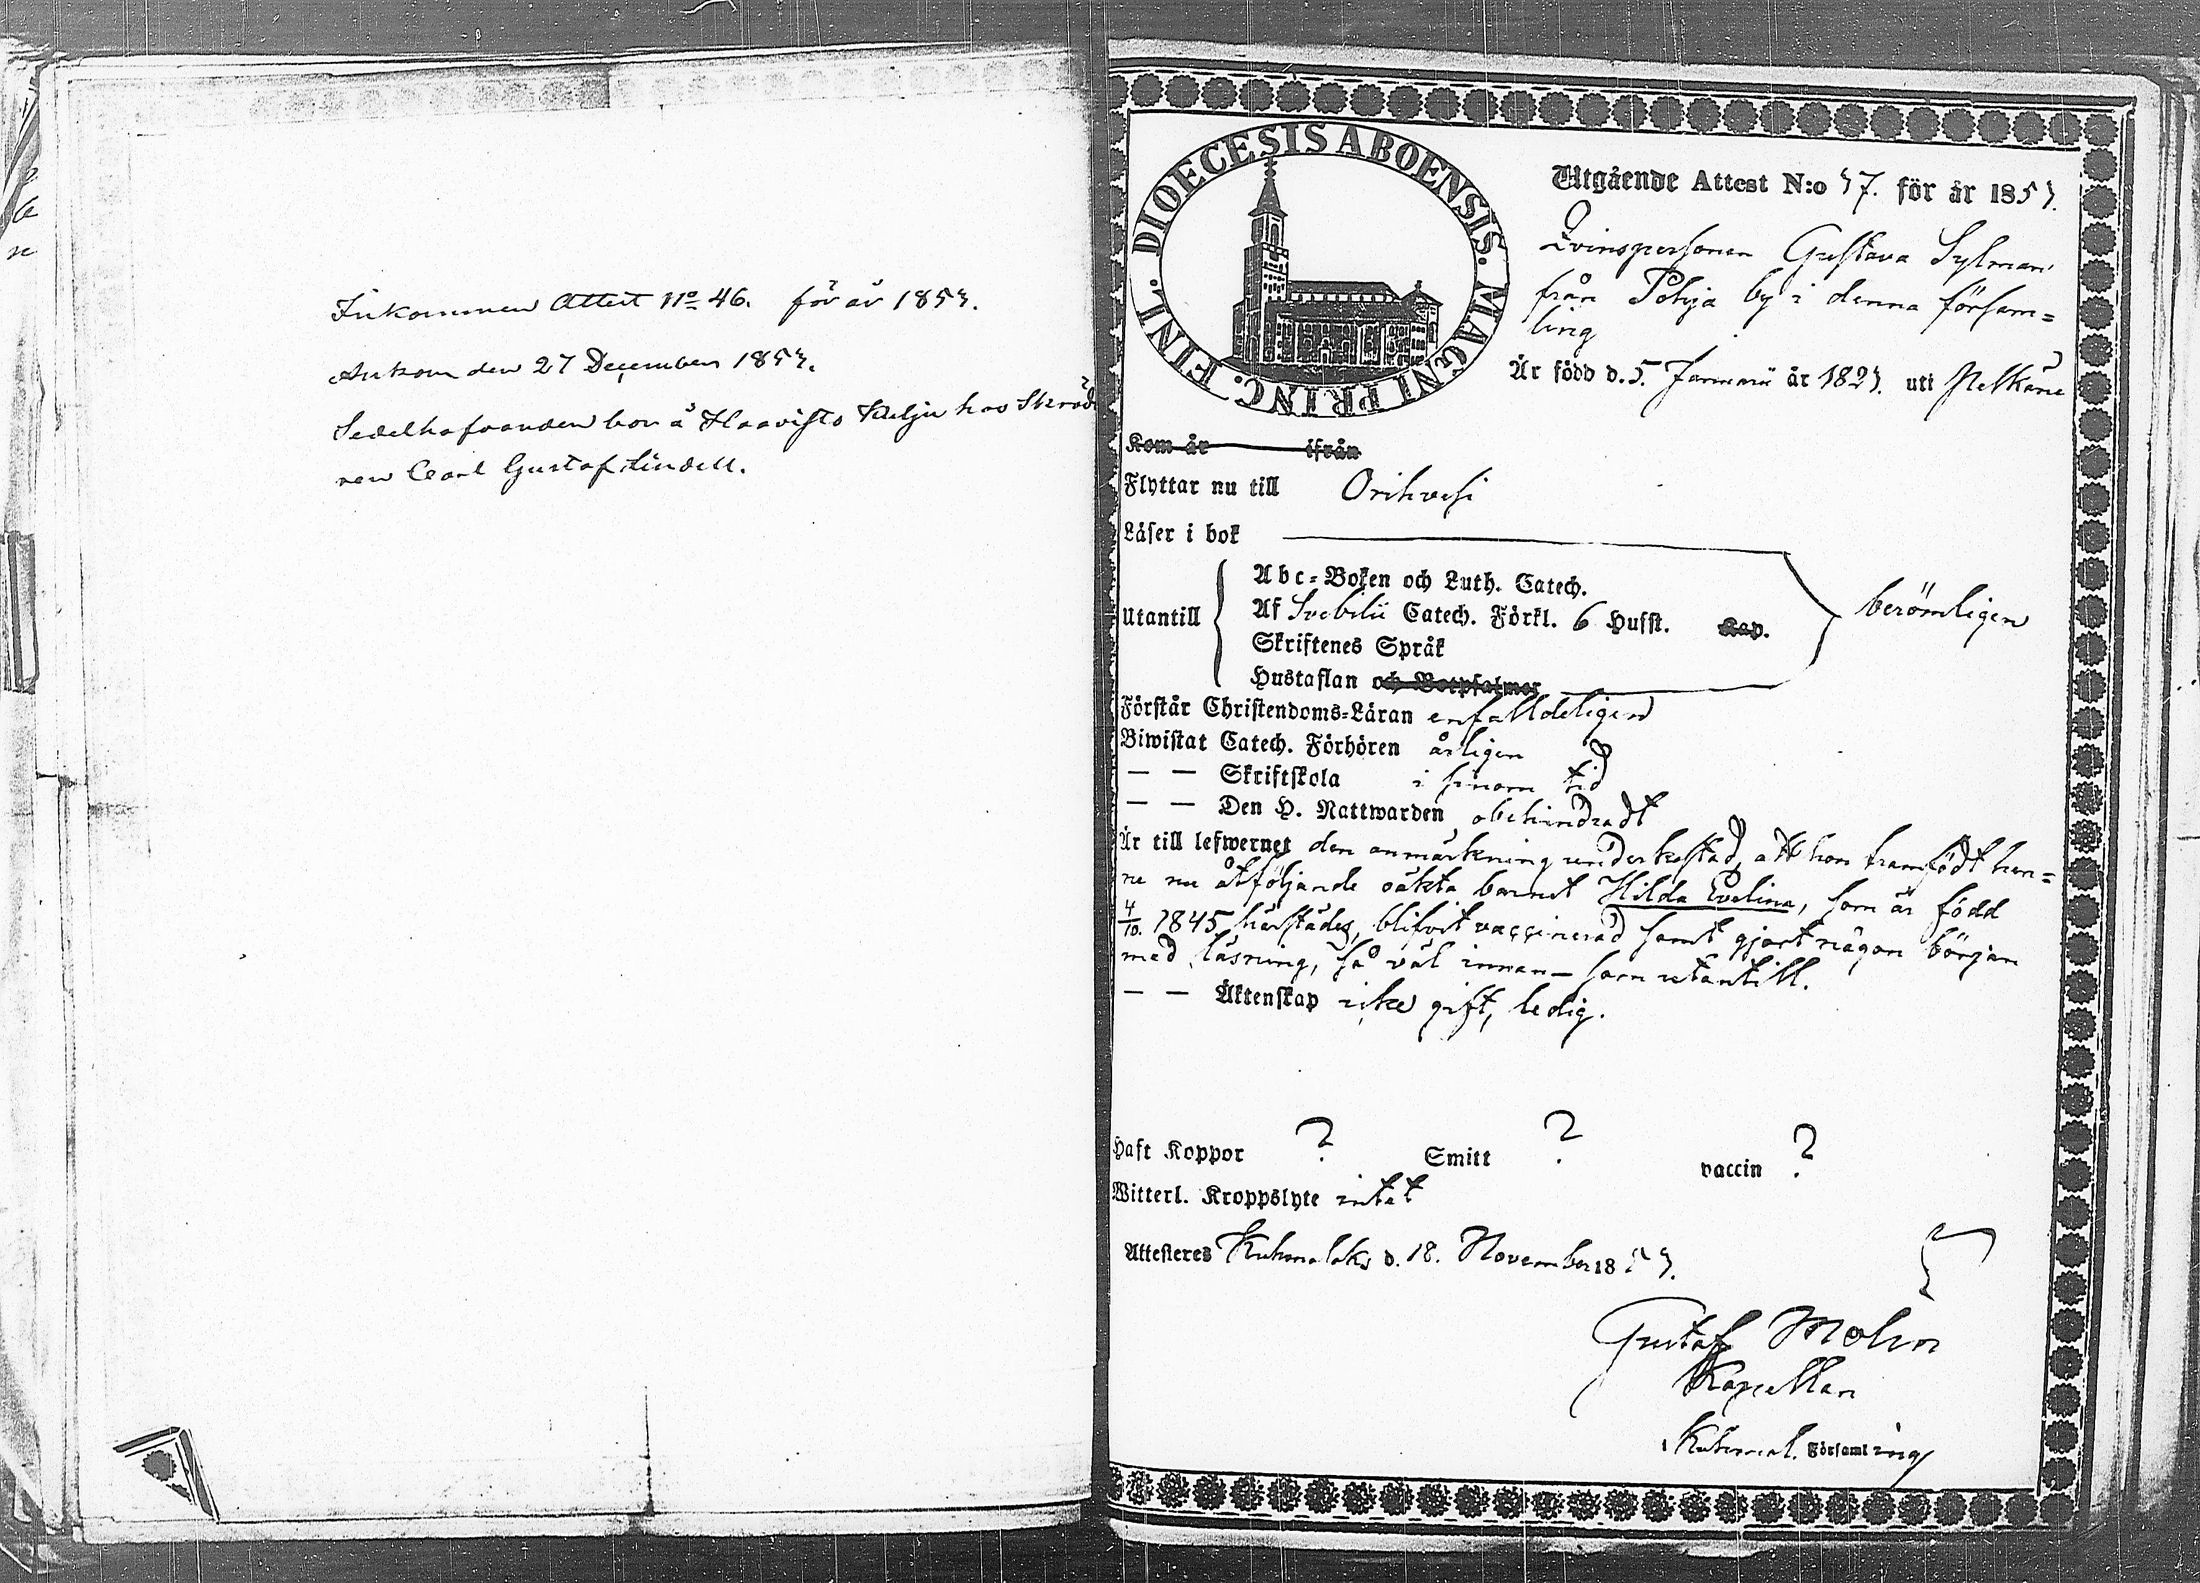 Inkommen Attest No 46. för år 1853.
Ankom den 27 December 1853.
Sedelhafvanden bor å Haavisto Kelju hos Skrädda
ren Carl Gustaf Lindell.
DIOECESIS ABOENSIS. MAGNI PRINC. FINL.
Utgående Attest N:o 37. för år 1853.
Qvinspersonen Gustava Sylman
från Pohja by i denna försam=
ling
Är född d. 5. Januarii år 1823. uti Pelkäne
Kom år ifrån
Flyttar nu till Orihvesi
Läser i bok
Abc=Boken och Luth. Catech.
Utantill Af Svebilii Catech. Förkl. 6 Hufst. Kap. berömligen
Skriftenes Språk
Hustaflan och Botpsalmer
Förstår Christendoms=Läran enfalldeligen
Biwistat Catech. Förhören årligen
— — Skriftskola i sinom tid
— — Den H. Nattwarden obehindradt
Är till lefwernet den anmärkning underkastad, att hon framfödt hen=
ne nu åtföljande oäkta barnet Hilda Evelina, som är född
4/10. 1845 härstädes, blifvit vaccinerad samt gjort någon början
med läsning, så väl innan– som utantill.
— — Äktenskap icke gift, ledig.
Haft Koppor ? Smitt ? vaccin ?
Witterl. Kroppslyte intet
Attesteras Kuhmalaks d. 18. November 1853.
Gustaf Molin
Kapellan
i Kuhmal. Församling